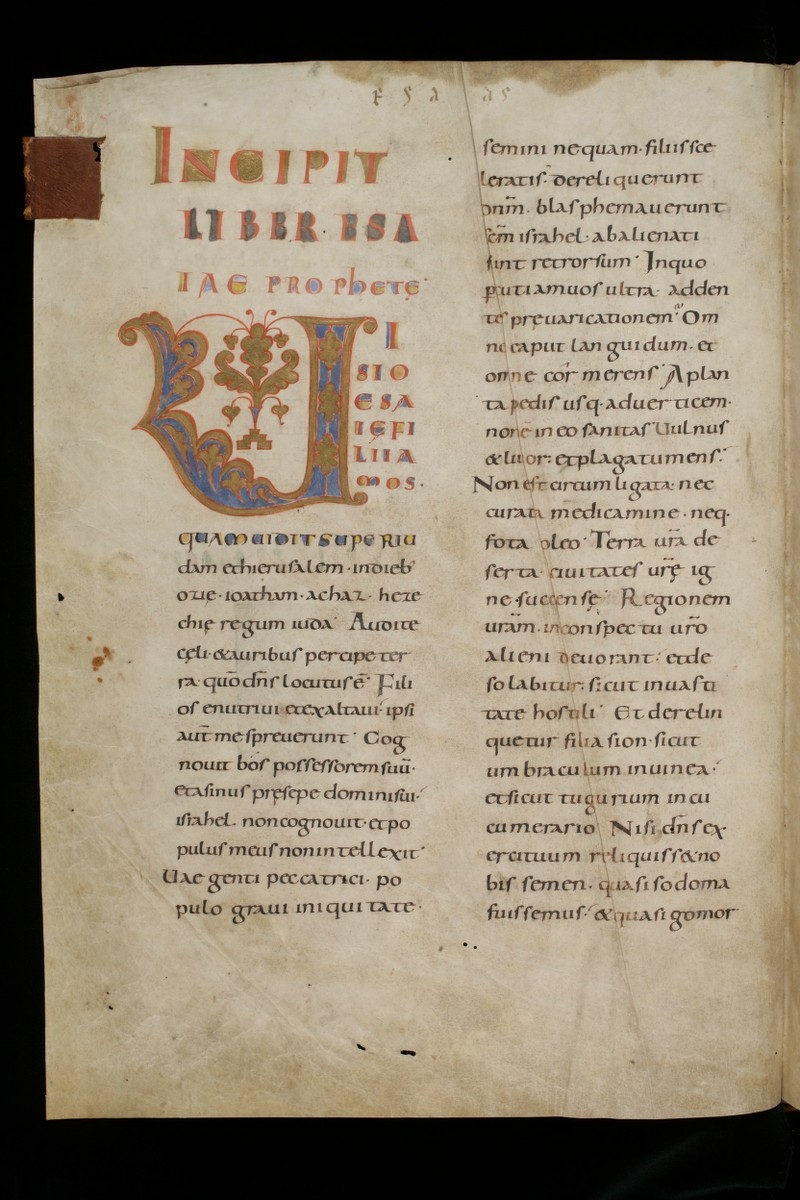 ESAIAS
INCIPIT
LIBER ESA
IAE PROPhETE
UI
SIO
ESA
IEFI
LII A
MOS.
quAm uiDIT super Iu
dam et hierusalem · in dieb'
ozię · ioatham · achaz · heze
chię regum iuda· Audite
cęli· & auribus percipe ter
ra· quo dn̄s locutus ē· Fili
os enutriui et exaltaui· ipsi
aut̄ me spreuerunt· Cog
nouit bos possessorem suū·
et asinus pręsepe domini sui·
israhel· non cognouit· et po
pulus meus non intellexit·
Uae genti peccatrici· po
pulo graui iniquitate·
semini nequam· filiis sce
leratis· dereliquerunt
dnm̄· blasphemauerunt
sc̄m israhel· abalienati
sunt retrorsum· In quo
percutiam uos ultra· adden
tes preuaricationem· Om
ne caput languidum· et
omne cor merens· A plan
ta pedis usq· ad uerticem·
non ē in eo sanitas· Uulnus
& liuor· et plaga tumens·
Non est circum ligata· nec
curata medicamine· neq·
fota oleo· Terra ur̄a de
serta· ciuitates ur̄ę ig
ne succensę· Regionem
uram̄· in conspectu uro̅
alieni deuorant· et de
solabitur· sicut in uasti
tate hostili· Et derelin
quetur filia sion· sicut
umbraculum in uinea·
et sicut tugurium in cu
cumerario· Nisi dn̄s ex
ercituum reliquiss& no
bis semen· quasi sodoma
fuissemus· & quasi gomor